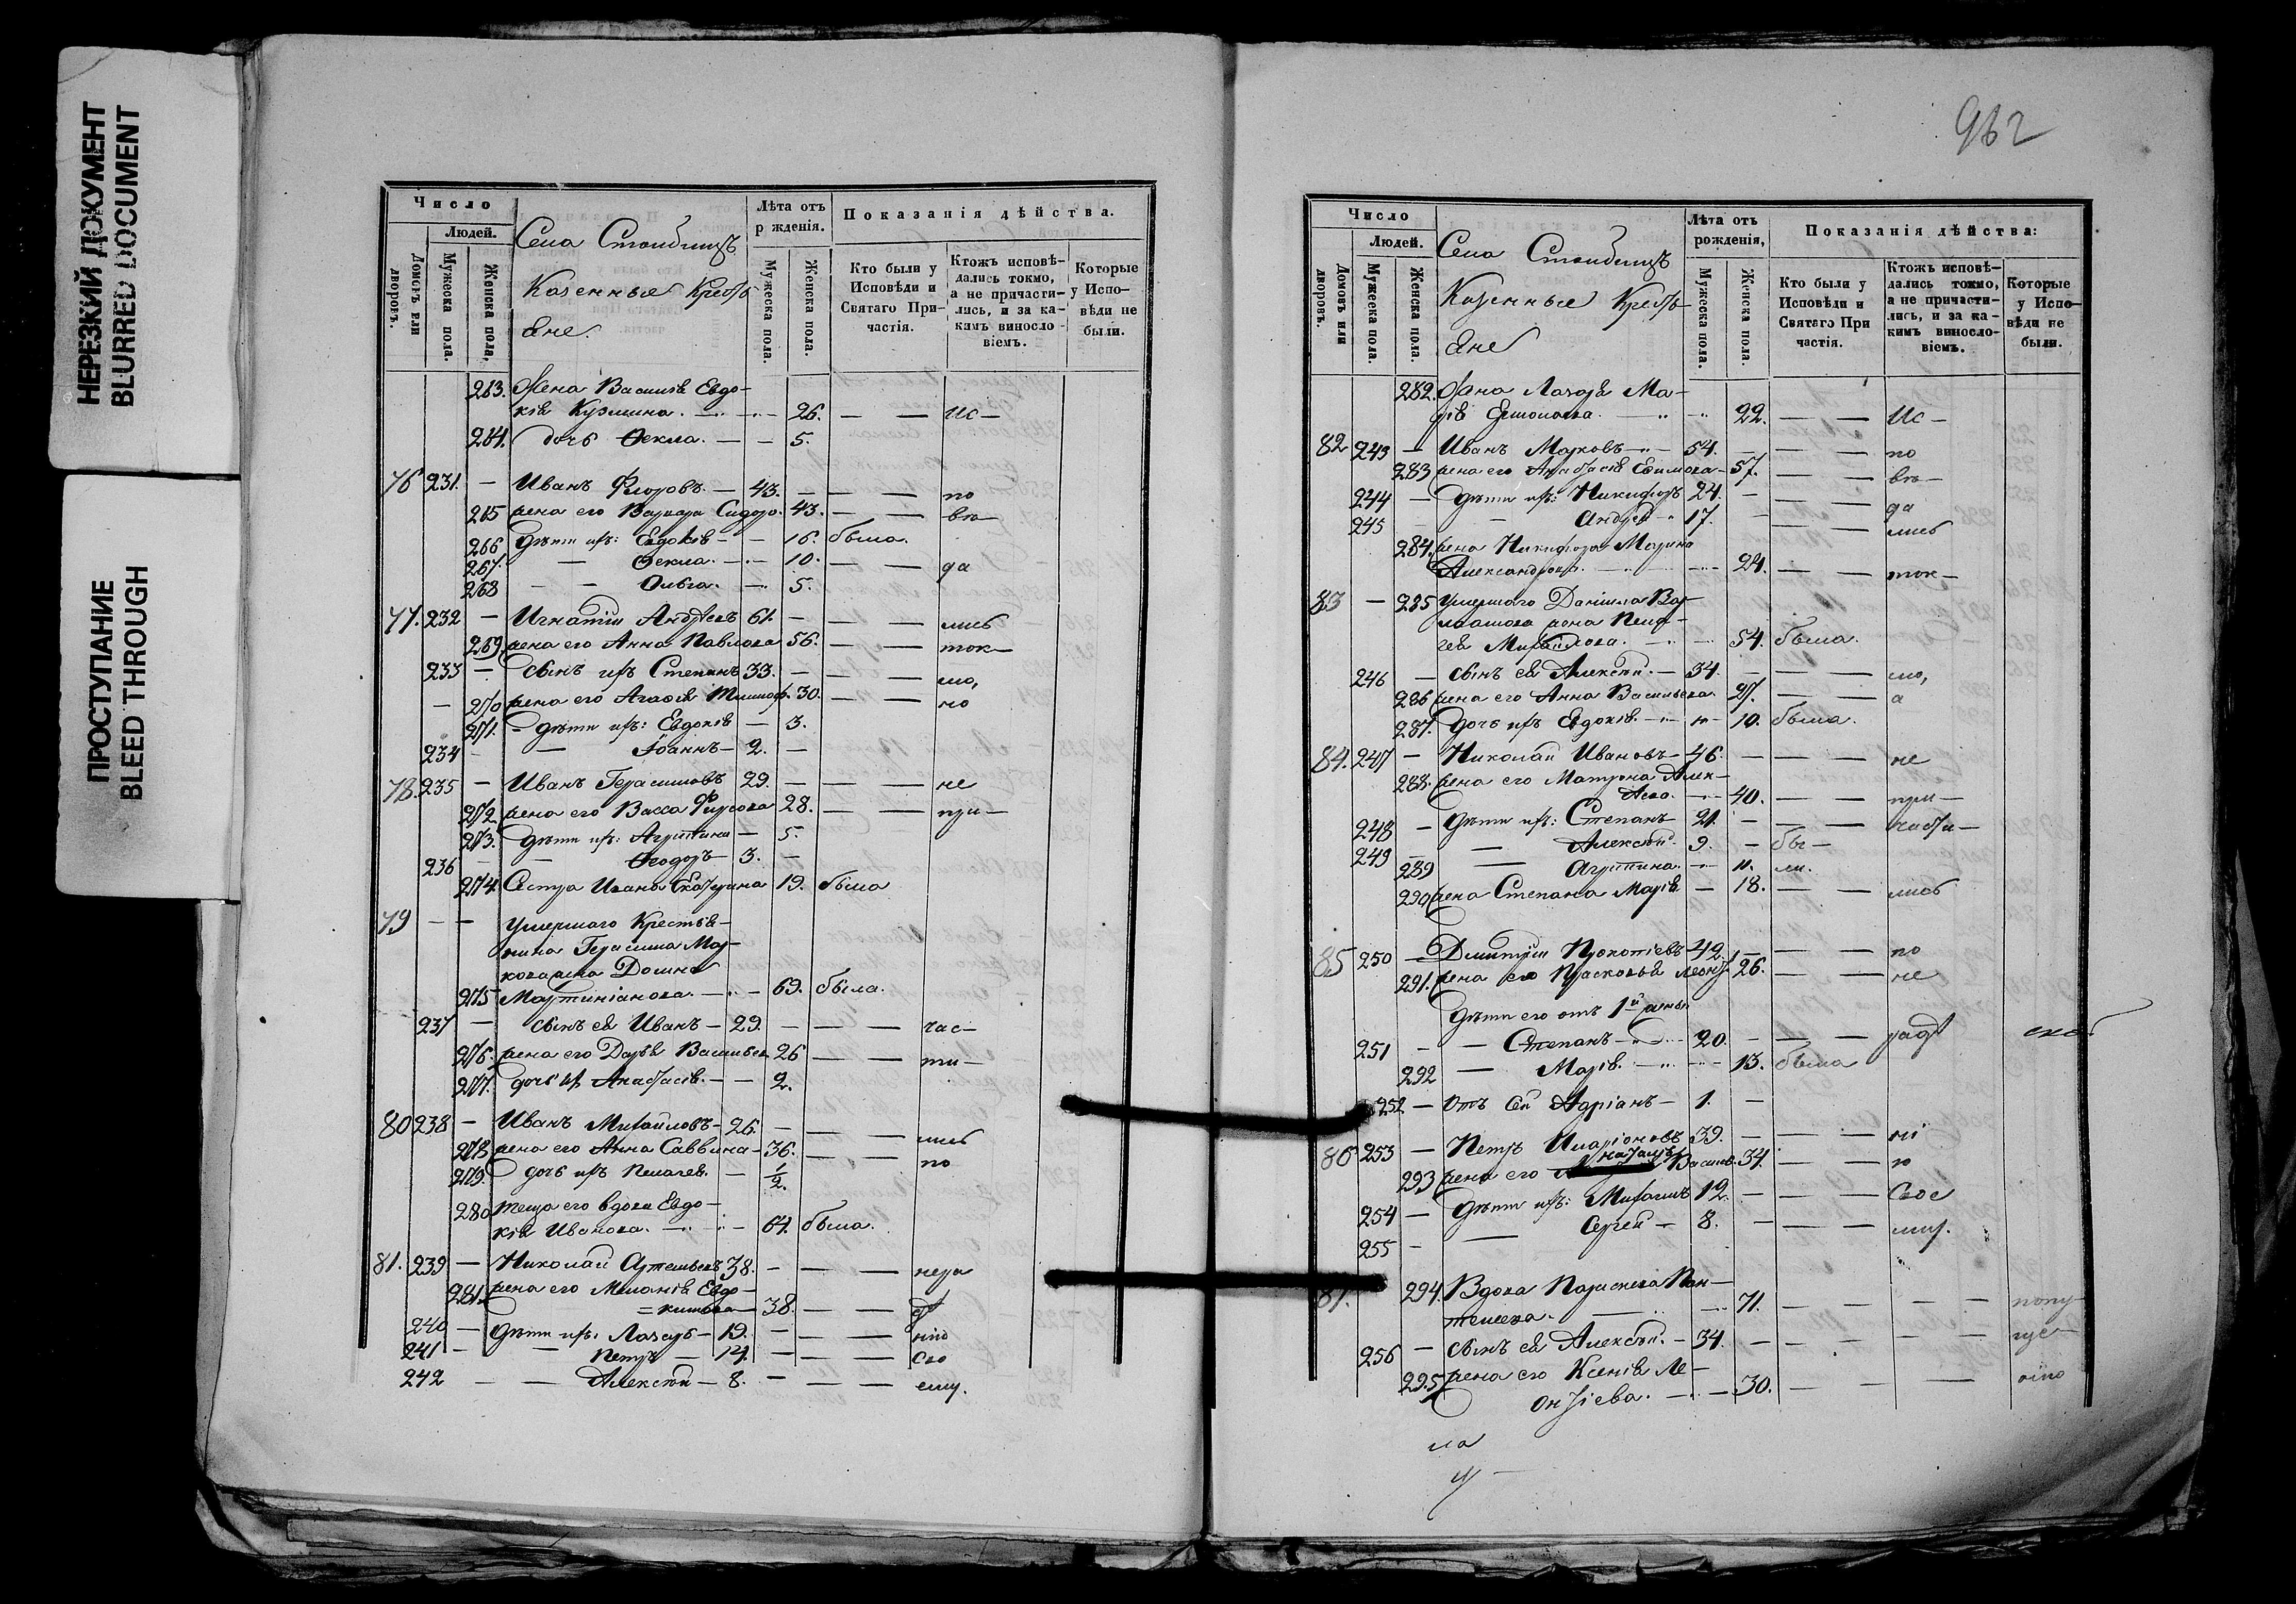 НЕРЕЗКИЙ ДОКУМЕНТ
BLURRED DOCUMENT
ПРОСТУПАНИЕ
BLEED THROUGH
Число
Людей.
Домовъ или дворовъ.
Мужеска пола.
Женска пола,
Села
Казенные Кресть
яне.
Лѣта отъ
р жденія.
Мужеска пола.
Женска пола.
Показанія дѣйства.
Кто были у
Исповѣди и
Святаго При-
частія.
Ктожъ исповѣ-
дались токмо,
а не причасти-
лись, и за ка-
кимъ виносло-
віемъ.
Которые
у Испо-
вѣди не
были.
263. Жена Василія Евдо-
кія Кузмина. 26. Ис-
264. дочь Ѳекла. 5.
76 231. Иванъ Флоровъ 43. по
265 жена его Варвара Сидоро. 43. вѣ-
266 дѣти ихъ: Евдокія 16. была.
267. Ѳекла. 10. да
268 Ольга. 5.
77. 232 Игнатій Андреевъ 61. лись
269 жена его Анна Павлова 56. ток-
233 сынъ ихъ Степанъ 33. мо,
270 жена его Агафія Тимоф. 30. но
271. дѣти ихъ: Евдокія 3.
234 Іоаннъ 2.
78. 235 Иванъ Герасимовъ 29. не
272 жена его Васса Фирсова 28. при-
273. дѣти ихъ: Агриппина 5.
236 Ѳеодоръ 3.
274. Сестра Ивана Екатерина 19. была
79 умершаго Крестья-
нина Герасима Мар-
кова жена Домна
275 Мартиніанова. 69. была.
237 сынъ ея Иванъ 29. час-
276. жена его Дарья Васильев 26 ти-
277. дочь их Анастасія. 2.
80 238 Иванъ Михайловъ 26. лись
278 жена его Анна Саввина 36. по
279. дочь ихъ Пелагея. 1/2.
280 теща его вдова Евдо-
кія Иванова. 64. была.
81. 239 Николай Артемьевъ 38. нера
281. жена его Меланія Евдо-
кимова 38.
240 дѣти ихъ: Лазарь 19. нію
241 Петръ 14. сво
242 Алексѣй 8. ему.
962
Число
Людей.
Домовъ или дворовъ.
Мужеска пола.
Женска пола.
Села
Казенные Кресть
яне
Лѣта отъ
рожденія,
Мужеска пола.
Женска пола.
Показанія дѣйства:
Кто были у
Исповѣди и
Святаго При
частія.
Ктожъ исповѣ-
дались токмо,
а не причасти-
лись, и за ка-
кимъ виносло-
віемъ.
Которые
у Испо-
вѣди не
были.
282. Жена Лазаря Ма-
рія Ермолаева. 22. Ис-
82 243 Иванъ Марковъ 54. по
283 жена его Анастасія Ефимова 57. вѣ-
244 дѣти ихъ: Никифоръ 24. да
245 Андрей 17. лись
284. жена Никифора Марина
Александрова. 24. ток-
83 285 умершаго Даніила Вар-
лаамова жена Пела-
гея Михайлова. 54. была.
246 сынъ ея Алексѣй. 34. мо,
286 жена его Анна Васильева. 27. а
287. дочь ихъ Евдокія. 10. была.
84. 247 Николай Ивановъ 46. не
288. жена его Матрона Алек-
40. при-
248 дѣти ихъ: Степанъ 21. части-
249 Алексѣй. 9. бы-
289 Агриппина. 11. ли.
290 жена Степана Марія 18. лись
85 250 Дмитрій Прокопіевъ 42. по
291. жена его Прасковья Леонт. 26. не
дѣти его отъ 1й жены
251 Степанъ 20. рад
292 Марія. 13. была
252 отъ сей Адріанъ 1.
86 253 Петръ Иларіоновъ 39. ні
293 жена его Наталія Васильев. 34. ю
254 дѣти ихъ: Михаилъ 12. Свое
255 Сергей 8. му.
87. 294. Вдова Параскева Пан-
телеева. 71. попу-
256 сынъ ея Алексѣй. 34. ще-
295 жена его Ксенія Ле-
онтіева. 30. нію